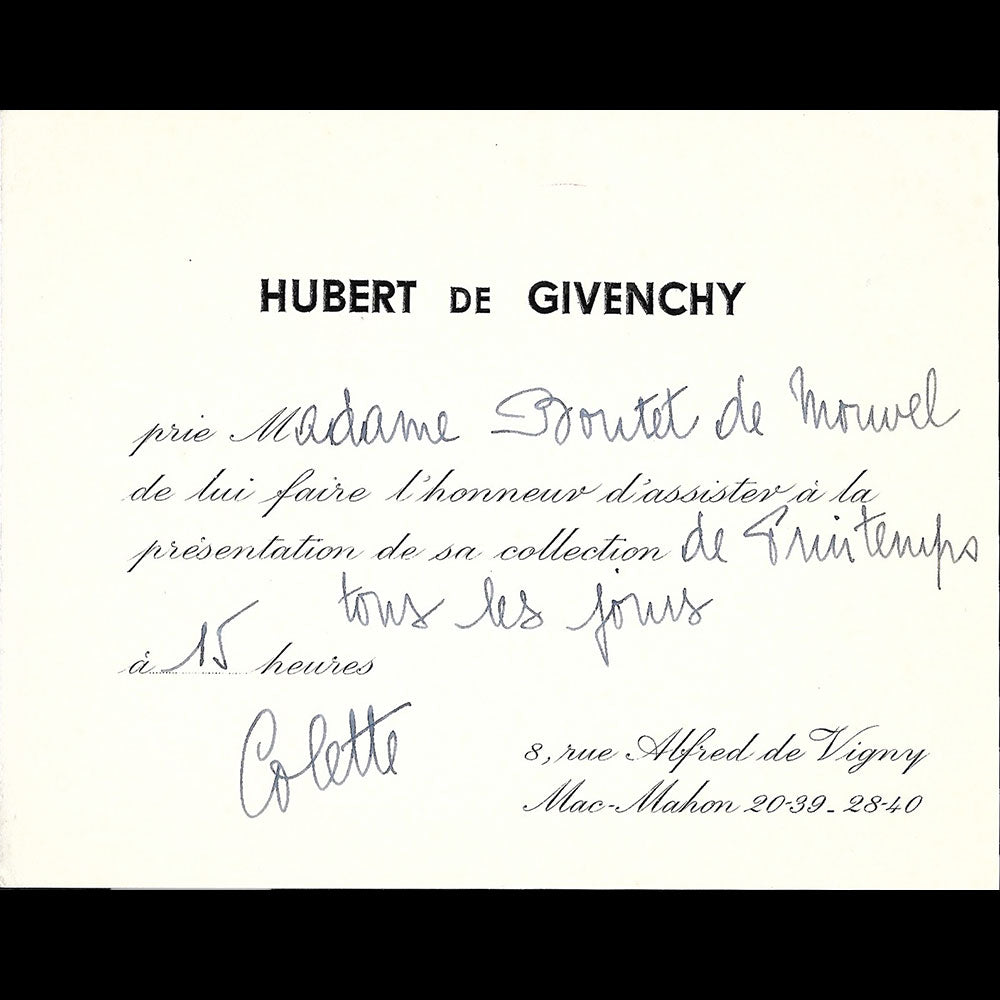 HUBERT DE GIVENCHY
prie Madame Boutet de Monvel
de lui faire l'honneur d'assister à la
présentation de sa collection de Printemps
tous les jours
à 15 heures
Colette
8, rue Alfred de Vigny
Mac-Mahon 20-39 - 28-40